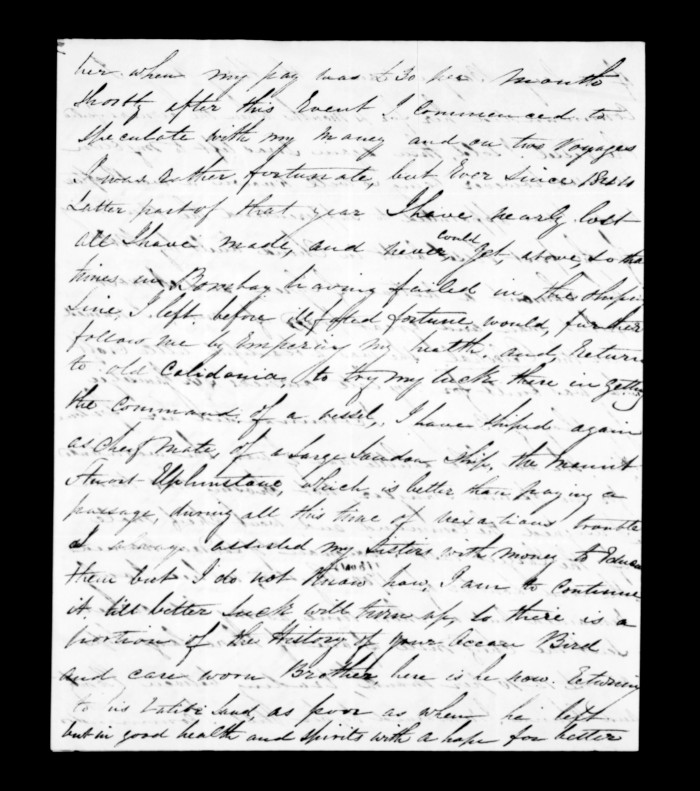 her when my pay was £30 per month
Shortly after this Event I Commenced to
Speculate with my Maney and on two Voyages
I was rather fortunate, but Ever Since
Latter part of that year I have nearly lost
all I have made, and never could Get above, so the
times in Bombay having failed in the Shipn
Line, I left before fortune would, further
follow me by Impering my health, and Return
to old Calidonia, to try my luck there in getting
the command of a vessel, I have Shiped again
as cheif Mate, of a Large London Ship, the Mount
Stuart Elphinstone, which is better than paying a
passage, during all this time of vexactious trouble
I always assisted my Sisters with money to Educa
them but I do not Know how, I am to Continue
it till better Luck will turn up, so there is a
portion of the History of your Ocean Bird
and care worn Brother here is he now Returning
to his Native Land, as poor as when he left
but in good health and Spirits with a hope for better